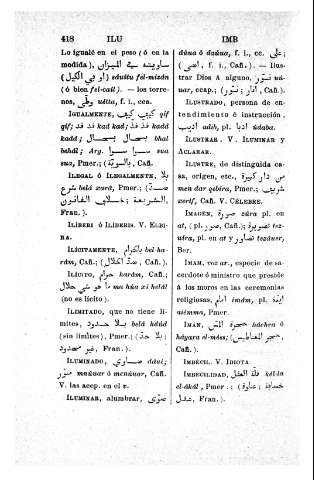 418 ILU IMB
Lo igualé en el peso (ó en la
medida), ساويته في الميزان
(او في الكيل) çduitu fel-miẓdn
(ó bien fel-cail). — los terre-
nos, وطّى uátta, f. i., cca.
IGUALMENTE, كيف كيف qif
qif; قد قد kad kad; قدّ قدّ kadd
kadd; بحال بحال bhal
bahdl; Arg. سوا سوا sua
sua, Pmer.; (بالسويّة, Cañ.).
ILEGAL Ó ILEGALMENTE, بلا
شرع belá xará, Pmer.; (ضدّ
الشريعة; خلاف القانون,
Fran.).
ILIBERI Ó ILIBERIS. V. ELBI-
RA.
ILÍCITAMENTE, بالحرام bel ha-
rdm, Cañ.; (ضدّ الحلال, Cañ.).
ILÍCITO, حرام harám, Cañ.;
ما هو شي حلال ma húa xi helál
(no es lícito).
ILIMITADO, que no tiene lí-
mites, بلا حدود belá hdúd
(sin límites), Pmer.; (بلا حدّ;
غير محدود, Fran.).
ILUMINADO, ضاوي dáui;
منوّر mnáuar ó menáuar, Cañ.
V. las acep. en el v.
ILUMINAR, alumbrar, ضوّى,
dáua ó daúua, f. i., cc. على;
(اضى, f. i., Cañ.). — Ilus-
trar Dios á alguno, نوّر náu-
uar, ccap.; (نوّر; انار, Cañ.).
ILUSTRADO, persona de en-
tendimiento ó instrucción,
اديب adib, pl. ادبا údaba.
ILUSTRAR. V. ILUMINAR y
ACLARAR.
ILUSTRE, de distinguida ca-
sa, origen, etc., من دار كبيرة
men dar qebira, Pmer.; شريف
xerif, Cañ. V. CÉLEBRE.
IMAGEN, صورة súra pl. en
at, (pl. صور, Cañ.); تصويرة tez-
uéra, pl. en at y تصاور tezáuer,
Ber.
IMAM, voz ar., especie de sa-
cerdote ó ministro que preside
á los moros en las ceremonias
religiosas, امام imám, pl. ايمّة
aiémma, Pmer.
IMÁN, حجرة المسّ háchra ó
háyara el-méss; (حجر المغناطيس,
Cañ.).
IMBÉCIL. V. IDIOTA.
IMBECILIDAD, قلّة العقل kél-la
el-áḳal, Pmer.; (غباوة;
Fran.).